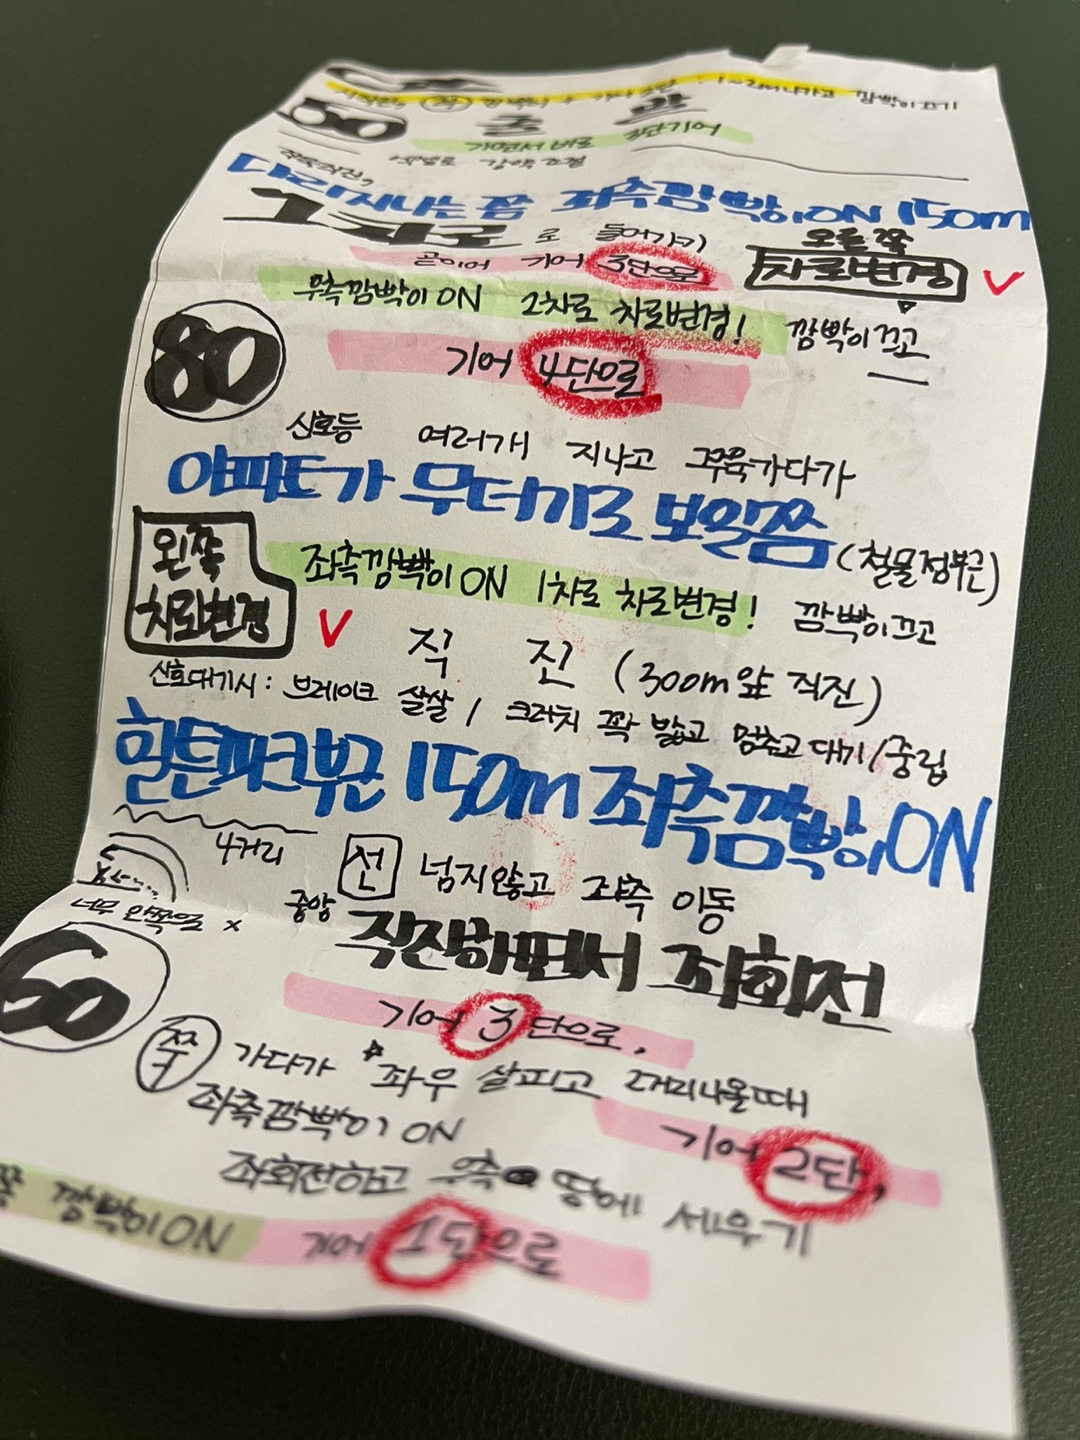 1~2m 나가고 깜빡이 끄기
출발
가면서 바로 3단기어
다리지나는 쯤 좌측깜빡이ON 150m
1차로로 들어가기
오른쪽
차로변경 V
곧이어 기어 3단으로
우측깜빡이 ON 2차로 차로변경! 깜빡이끄고
80
기어 4단으로
신호등 여러개 지나고 쭈욱가다가
아파트가 무더기로 보일쯤 (철물점부근)
왼쪽
차로변경 V
좌측깜빡이 ON 1차로 차로변경! 깜빡이끄고
직진 (300m앞 직진)
신호대기시: 브레이크 살살 / 크러치 꽉 밟고 멈추고 대기/중립
힐튼파크부근 150m 좌측깜빡이ON
4거리 중앙 선 넘지않고 좌측 이동
너무 안쪽으로 x
직진하면서 좌회전
60
기어 3단으로.
쭉 가다가 좌우 살피고 2거리나올때
좌측깜빡이 ON
기어 2단,
좌회전하고 우측 땅에 세우기
깜빡이ON 기어 1단으로